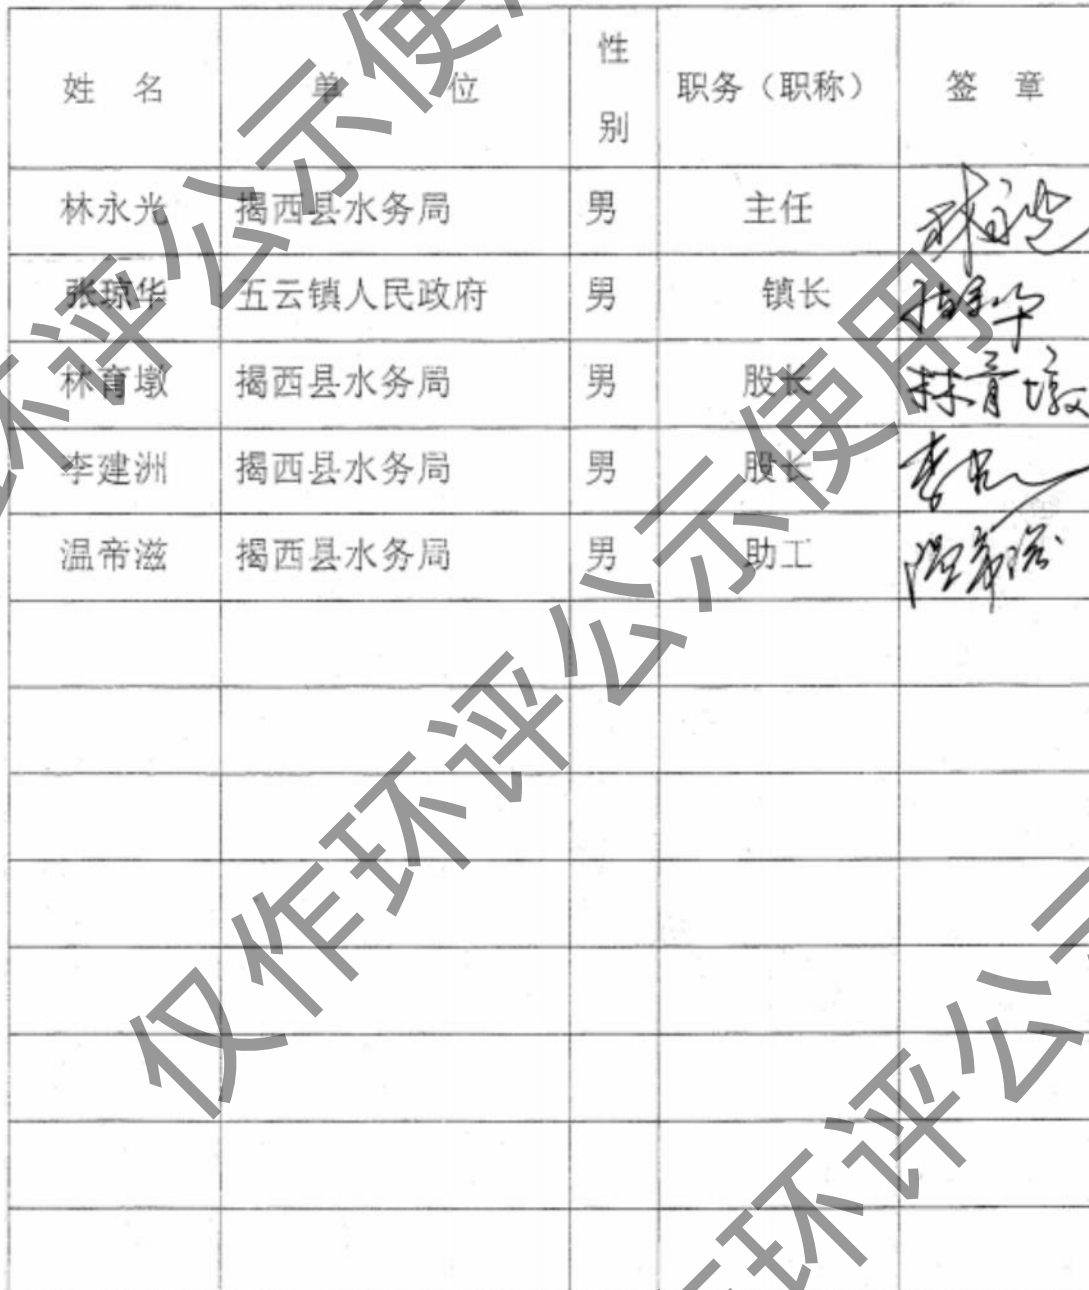 姓 名 单 位 性别 职务（职称） 签 章
林永光 揭西县水务局 男 主任 林永光
张琼华 五云镇人民政府 男 镇长
林育墩 揭西县水务局 男 股长 林育墩
李建洲 揭西县水务局 男 股长
温帝滋 揭西县水务局 男 助工 温帝滋
仅作环评公示使用
环评公示使用
环评公示